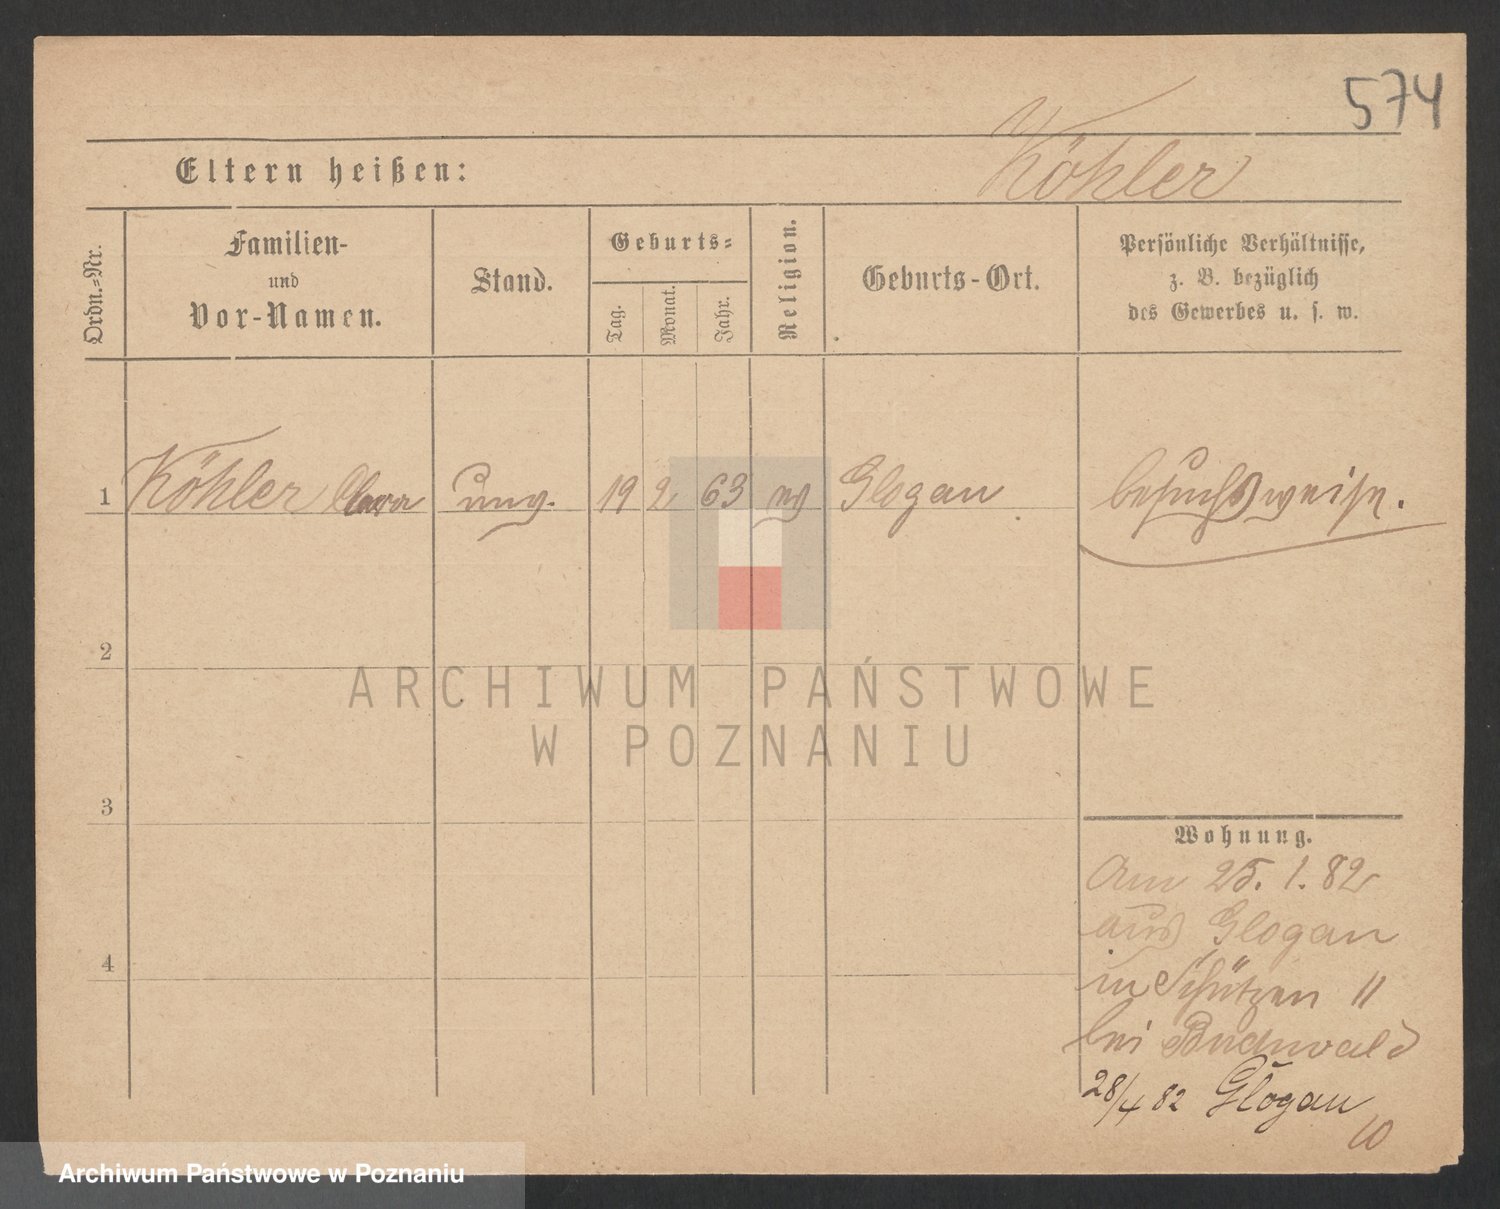 574
Köhler
Eltern heißen:
Ordn.=Nr.
Familien-
und
Vor-Namen.
Stand.
Geburts=
Tag.
Monat.
Jahr.
Religion.
Geburts-Ort.
Persönliche Verhältnisse,
z. B. bezüglich
des Gewerbes u. s. w.
1 Köhler Clara unv. 19 2 63 ev Glogau besuchsweise.
2
ARCHIWUM PAŃSTWOWE
W POZNANIU
3
Wohnung.
Am 25. 1. 82
aus Glogau
4
in Schützen 11
bei Buchwald
28/4 82 Glogau
Archiwum Państwowe w Poznaniu